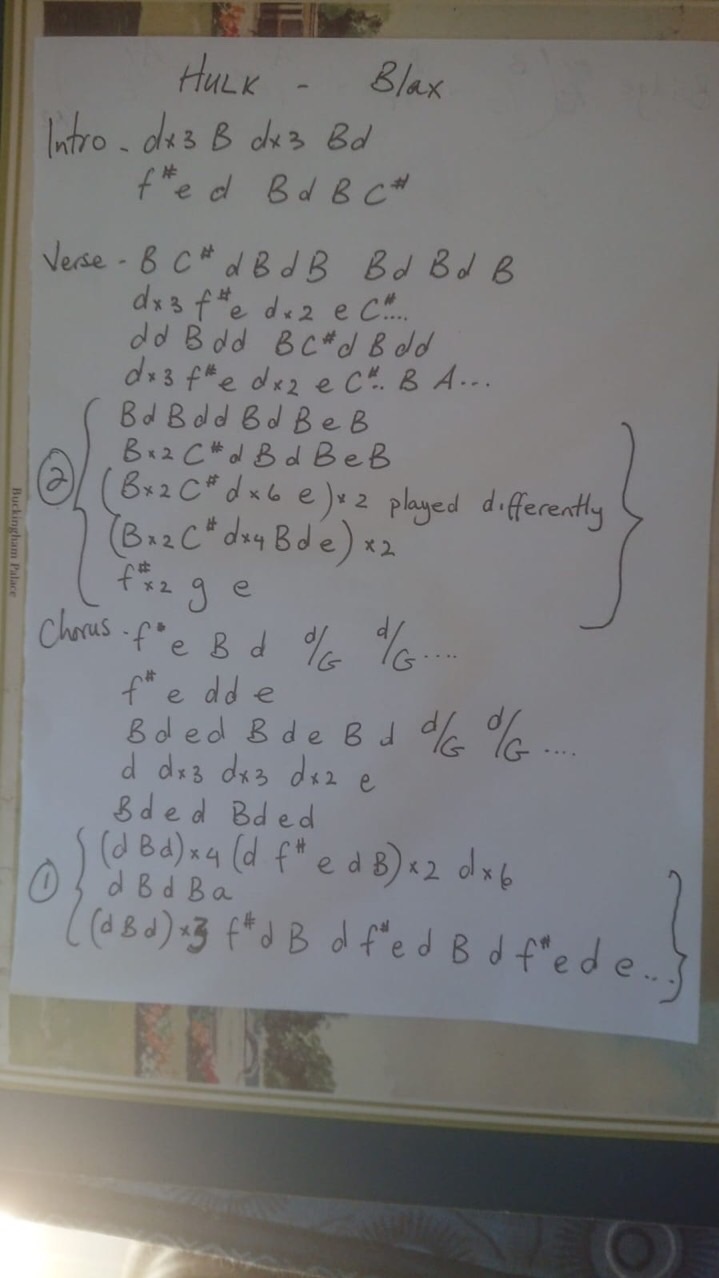 HULK - Blax
Intro - dx3 B dx3 Bd
f#e d BdBC#
Verse - B C# d B d B Bd Bd B
dx3 f#e dx2 e C#....
dd Bdd BC#d Bdd
dx3 f#e dx2 e C#.. B A...
② BdBddBdBeB
Bx2 C#dBdBeB
(Bx2 C# dx6 e)x2 played differently
(Bx2 C# dx4 Bde)x2
f#x2 g e
Chorus - f#e B d d/G d/G....
f# e dd e
Bded Bde Bd d/G d/G ....
d dx3 dx3 dx2 e
Bded Bded
① (dBd)x4 (d f# e d B)x2 dx6
dBdBa
(dBd)x3 f#dB df#edB df#ede...
Buckingham Palace